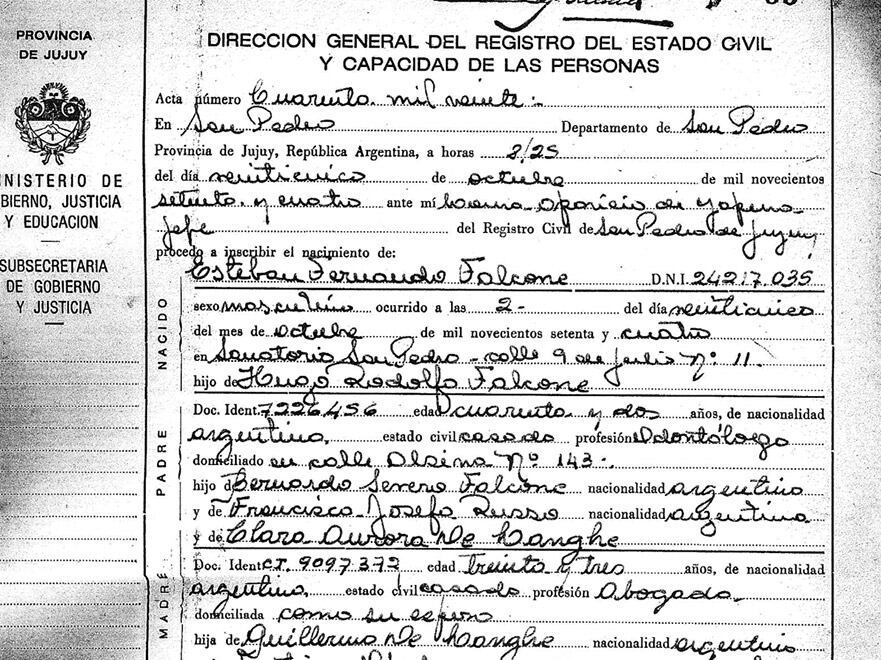 PROVINCIA
DE JUJUY
MINISTERIO DE
GOBIERNO, JUSTICIA
Y EDUCACION
SUBSECRETARIA
DE GOBIERNO
Y JUSTICIA
DIRECCION GENERAL DEL REGISTRO DEL ESTADO CIVIL
Y CAPACIDAD DE LAS PERSONAS
Acta número Cuarenta mil veinte.
En San Pedro Departamento de San Pedro
Provincia de Jujuy, República Argentina, a horas 8/25
del día veinticinco de octubre de mil novecientos
setenta y cuatro ante mí Aparicio de
jefe del Registro Civil de San Pedro de Jujuy
procedo a inscribir el nacimiento de:
Esteban Fernando Falcone D.N.I. 24217.035
NACIDO
sexo masculino ocurrido a las 2- del día veinticinco
del mes de octubre de mil novecientos setenta y cuatro
en Sanatorio San Pedro - calle 9 de julio Nº 11.
hijo de Hugo Rodolfo Falcone
PADRE
Doc. Ident. 7226.456 edad cuarenta y dos años, de nacionalidad
argentino, estado civil casado profesión Odontólogo
domiciliado en calle Alsina Nº 143.
hijo de Bernardo Severo Falcone nacionalidad argentino
y de Francisca Josefa Russo nacionalidad argentina
y de Clara Aurora De Langhe
MADRE
Doc. Ident. CI. 9097.372 edad treinta y tres años, de nacionalidad
argentina, estado civil casada profesión Abogada
domiciliada como su esposo
hija de Guillermo De Langhe nacionalidad argentino